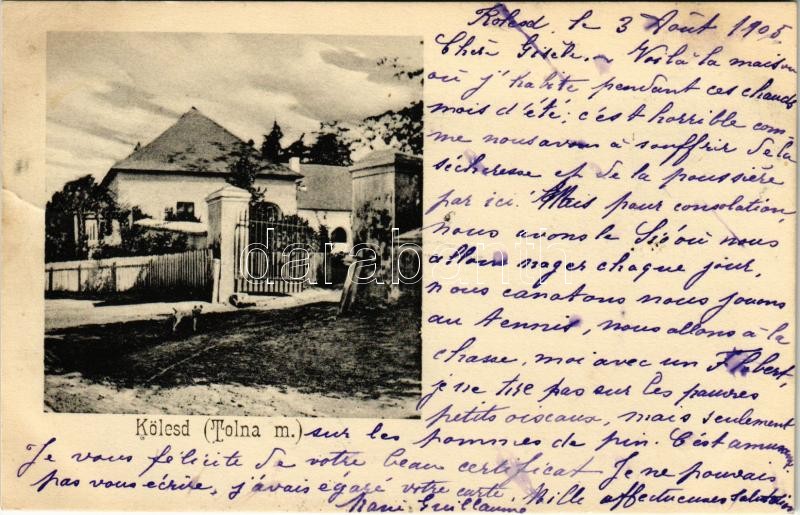 Kolesd, le 3 Août 1905
Chère Gisèle. Voilà la maison
où j'habite pendant ces chauds
mois d'été; c'est horrible com-
me nous avons à souffrir de la
sécheresse et de la poussière
par ici! Mais pour consolation,
nous avons le Sió où nous
allons nager chaque jour,
nous canotons nous jouons
au tennis, nous allons à la
chasse, moi avec un Flobert,
je ne tire pas sur les pauvres
petits oiseaux, mais seulement
Kölesd (Tolna m.)
sur les pommes de pin. C'est amusant.
Je vous félicite de votre beau certificat Je ne pouvais
pas vous écrire, j'avais égaré votre carte. Mille affectueuses salutations
Guillaume
darabanth